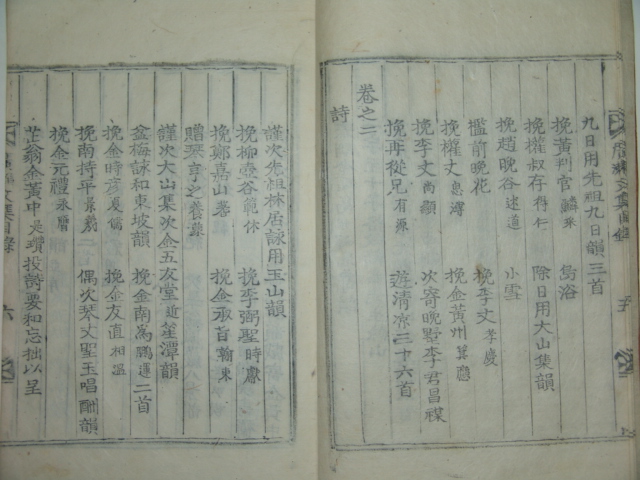 九日用先祖九日韻三首
挽黃判官麟采 島浴
挽權叔存得仁 除日用大山集韻
挽趙晚谷述道 小雪
檻前晚花 挽李丈孝慶
挽權丈 挽金黃州箕應
挽李丈尚顯 次寄晚野李君昌祼
挽再從兄有源 遊清凉三十六首
卷之二
詩
謹次先祖林居詠用玉山韻
挽柳壺谷範休 挽李弼聖時憲
挽鄭嘉山耆 挽金承旨翰東
贈琴亨之養蒙
謹次大山集次金五友堂近笙潭韻
盆梅詠和東坡韻 挽金南爲鵬運二首
挽金時彦夏儒 挽金友直相温
挽南持平景羲二首 偶次琴丈聖玉唱酬韻
挽金元禮永曆
芝翁金黃中是瓚投詩要和忘拙以呈
文集目錄 五
文集目錄 六